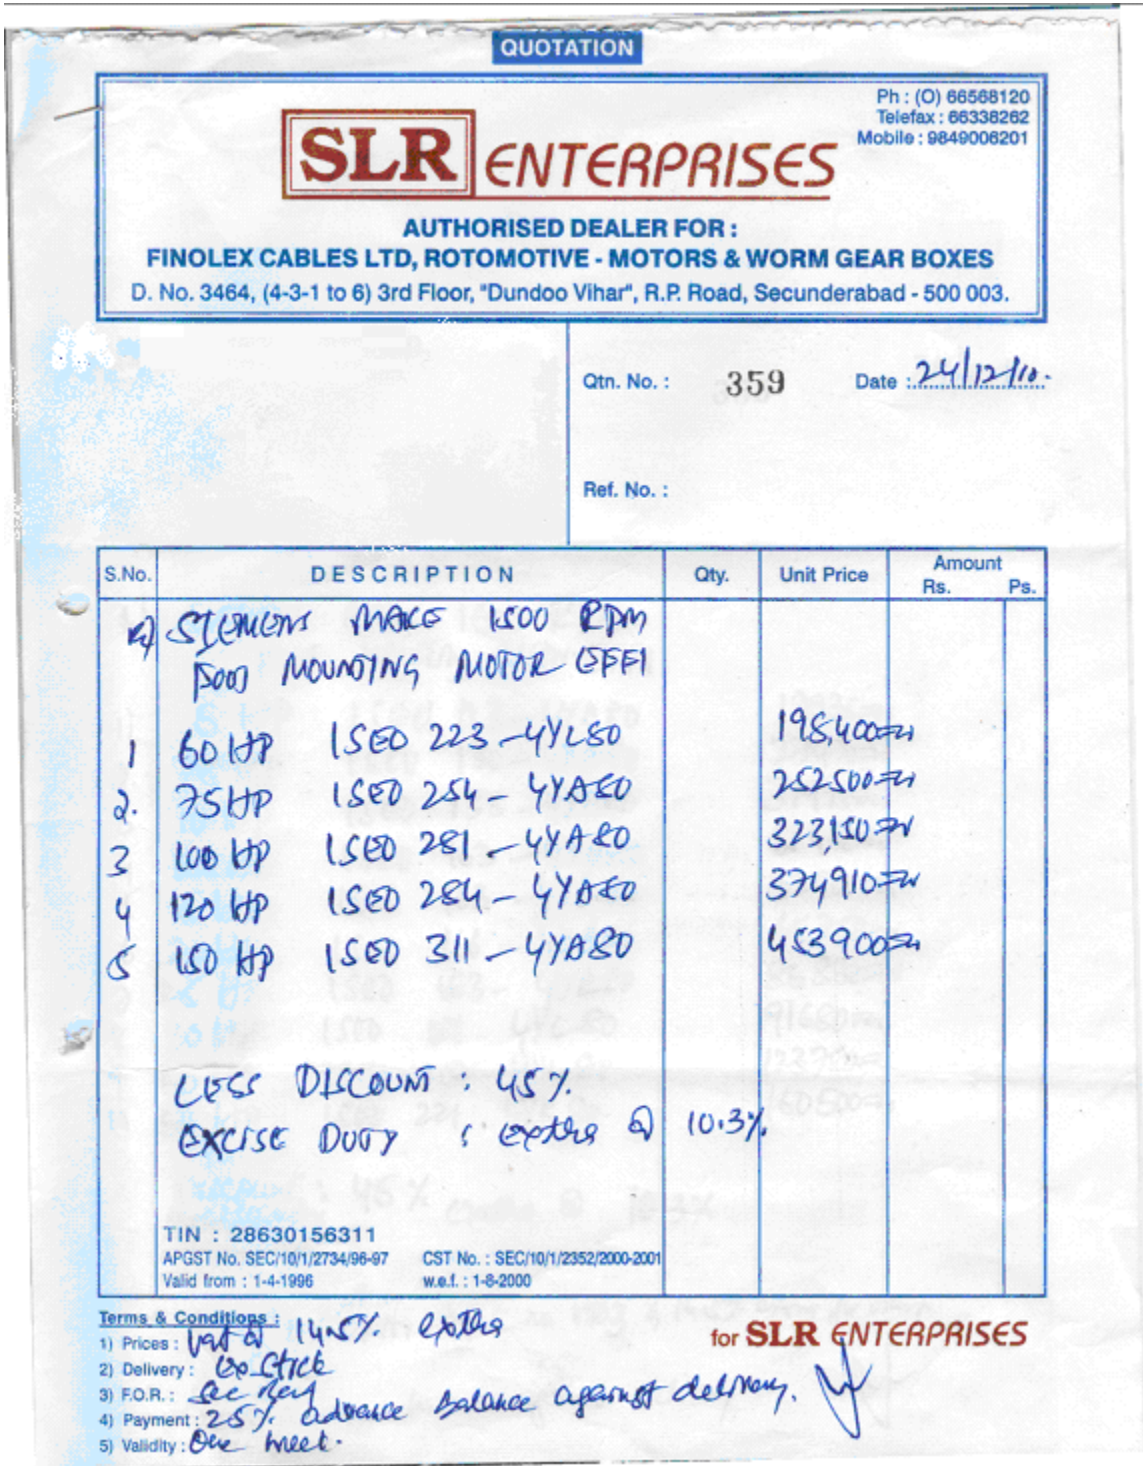 QUOTATION
Ph : (O) 66568120
Telefax : 66338262
Mobile : 9849006201
SLR ENTERPRISES
AUTHORISED DEALER FOR :
FINOLEX CABLES LTD, ROTOMOTIVE - MOTORS & WORM GEAR BOXES
D. No. 3464, (4-3-1 to 6) 3rd Floor, "Dundoo Vihar", R.P. Road, Secunderabad - 500 003.
Qtn. No. : 359 Date : 24/12/10.
Ref. No. :
S.No. DESCRIPTION Qty. Unit Price Amount
Rs. Ps.
SIEMENS MAKE 1500 RPM
MOUNTING MOTOR EFF1
1 60 HP 1SE0 223-4YL80 195,400=00
2. 75 HP 1SE0 254-4YA80 252500=00
3 100 HP 1SE0 281-4YA80 323,150=00
4 120 HP 1SE0 284-4YA80 374910=00
5 150 HP 1SE0 311-4YA80 453900=00
LESS DISCOUNT : 45%
EXCISE DUTY : extra @ 10.3%
TIN : 28630156311
APGST No. SEC/10/1/2734/96-97 CST No. : SEC/10/1/2352/2000-2001
Valid from : 1-4-1996 w.e.f. : 1-8-2000
Terms & Conditions :
1) Prices : Vat @ 14.5% extra
for SLR ENTERPRISES
2) Delivery : Ex Stock
3) F.O.R. : Sec Bad
4) Payment : 25% advance Balance against delivery.
5) Validity : One week.